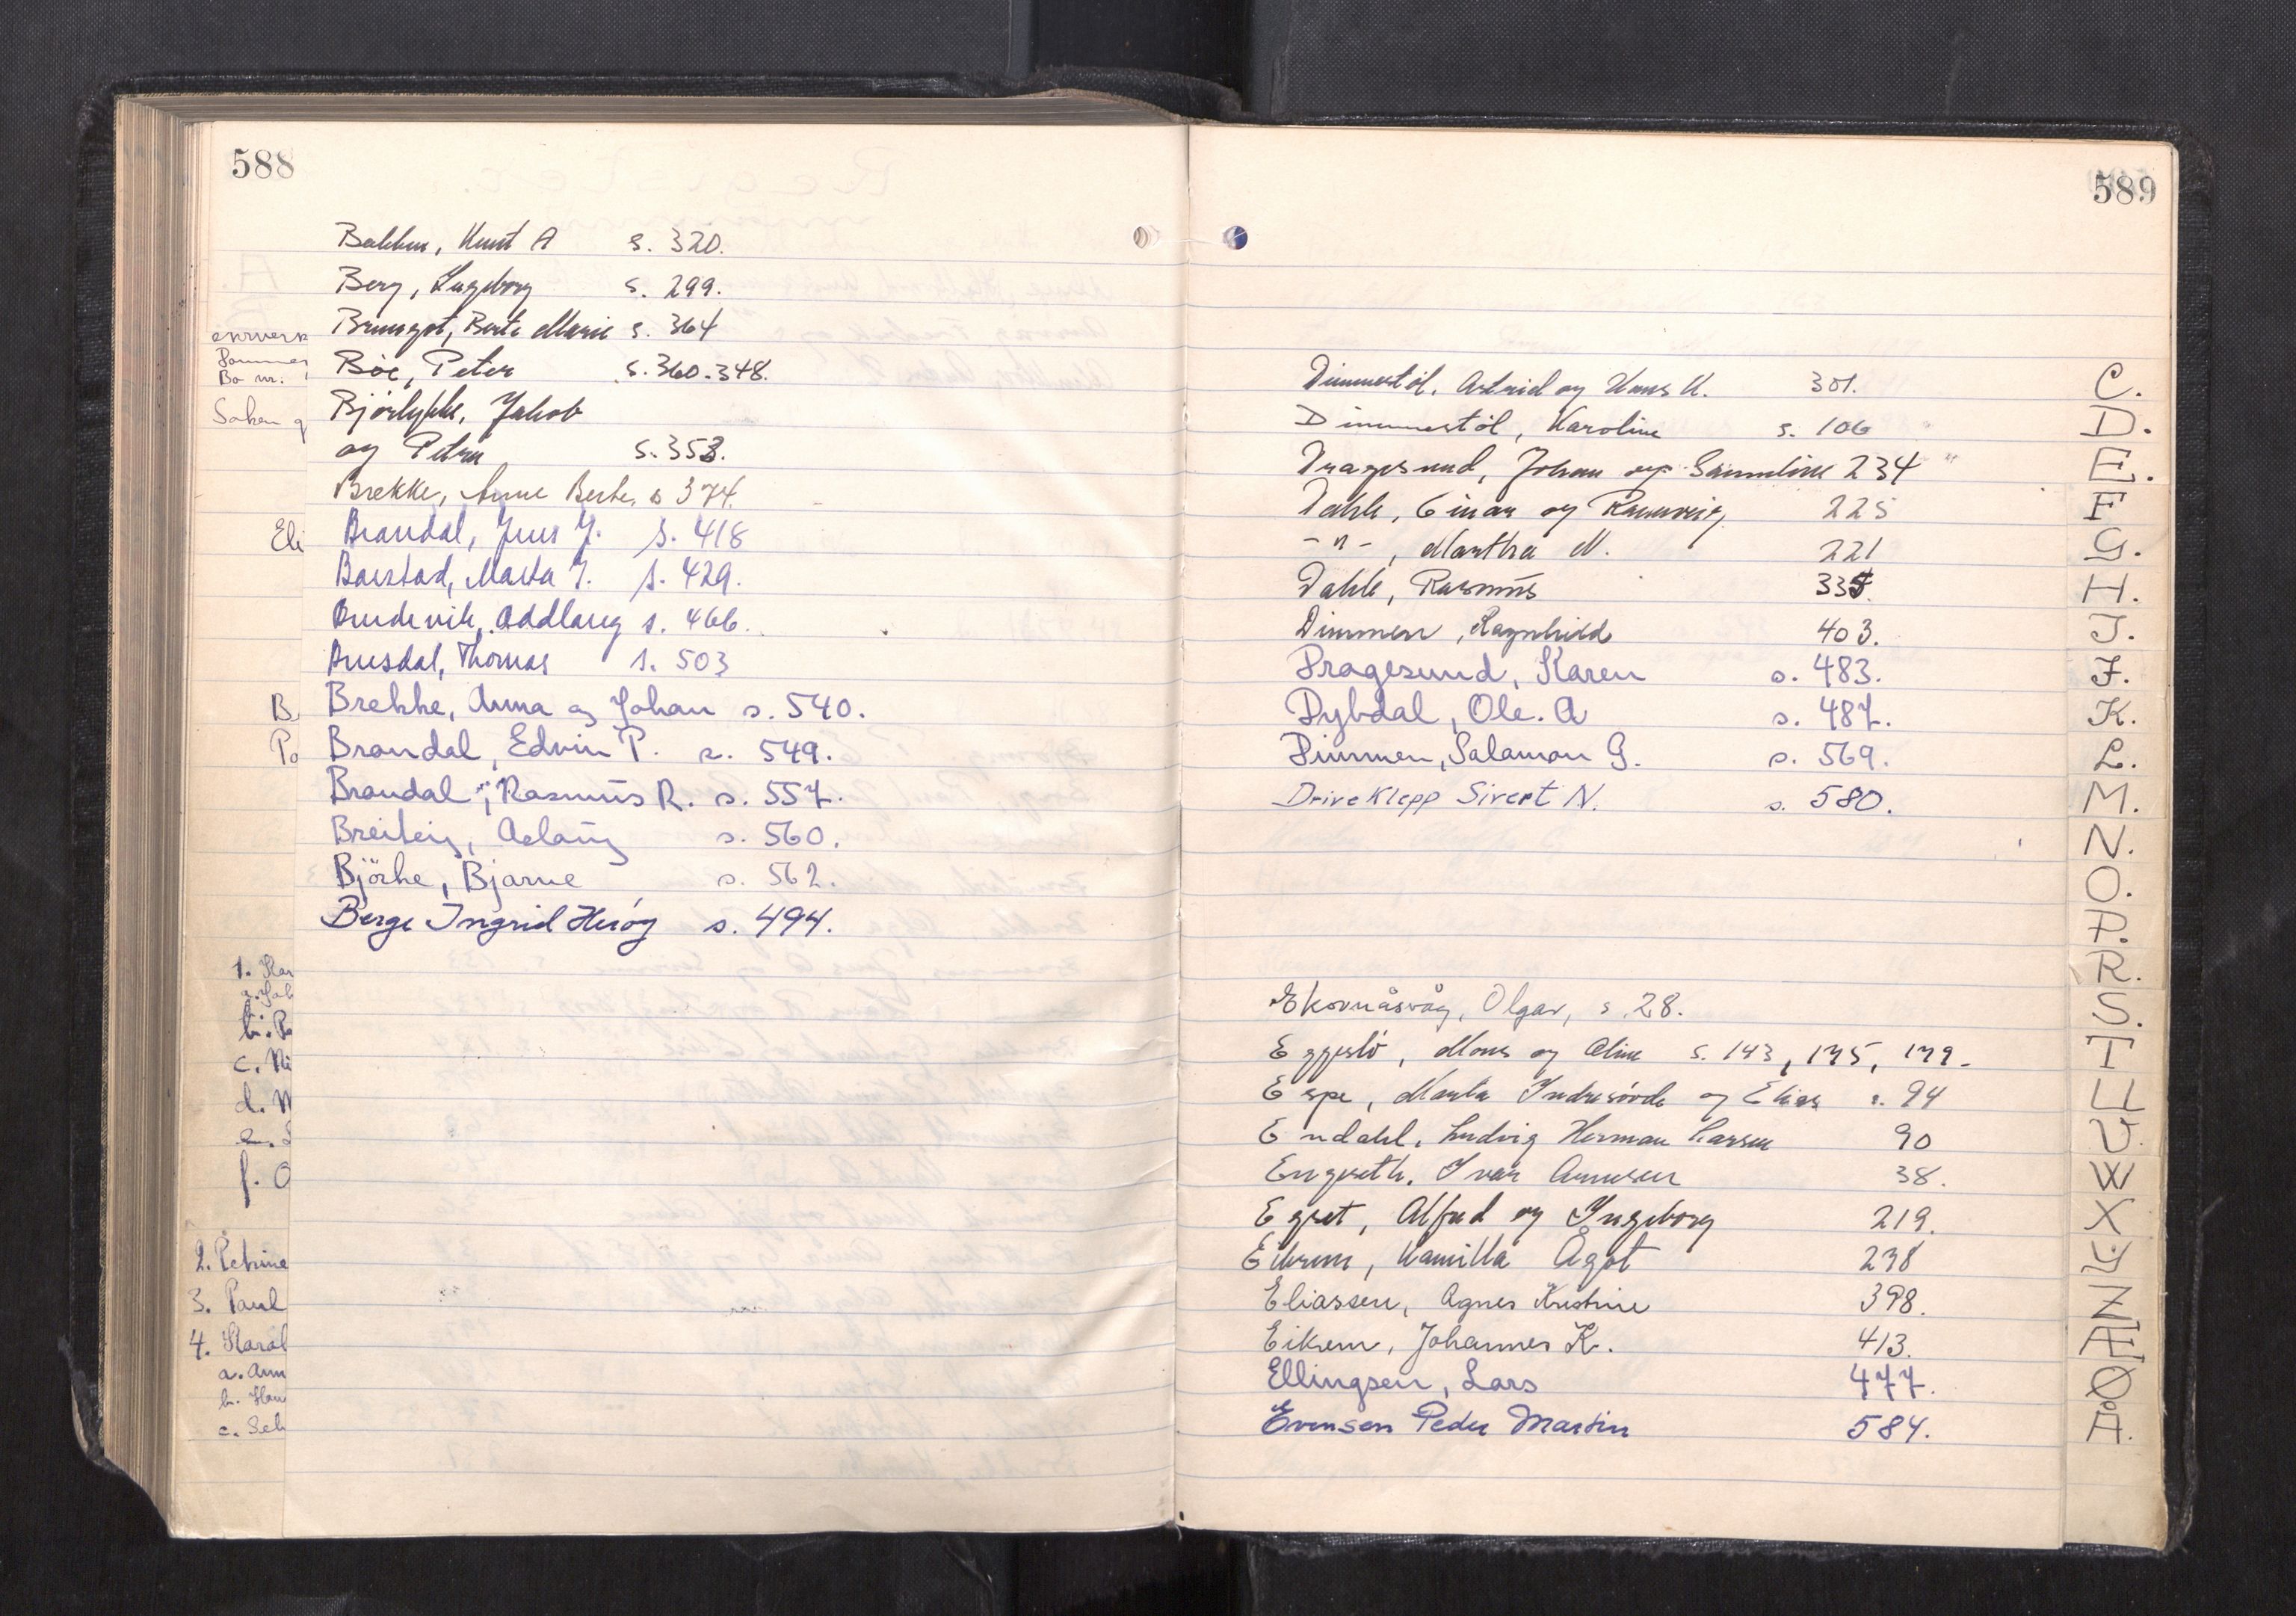 588
Bakken, Knut A s. 320.
Berg, Ingeborg s. 299.
Brungot, Berte Marie s. 364
Böe, Peter s. 360. 348.
Björlykke, Jakob
og Petra s. 353.
Brekke, Anne Berte, s 374.
Brandal, Jens J. s. 418
Barstad, Marta J. s. 429.
Oddlaug s. 466.
Thomas s. 503
Brekke, Anna og Johan s. 540.
Brandal, Edvin P. s. 549.
Brandal, Rasmus R. s. 557.
Breiteig, Aslaug s. 560.
Björke, Bjarne s. 562.
Berge Ingrid Heröy s. 494.
Eli
B
Po
1. Kar
a. Jab
b. Pe
c. Ni
d. M
f. O
2. Petrine
3. Paul
4. Karol
a. Ann
b. Han
c. Sel
589
Dimmestöl, Astrid og Hans K. 301.
Dimmestöl, Karoline s. 106
Dragesund, Johan og Samuline 234
Dahle, Einar og Rannveig 225
-"-, Martha M. 221
Dahle, Rasmus 335.
Dimmen, Ragnhild 403.
Dragesund, Karen s. 483.
Dybdal, Ole. A s. 487.
Dimmen, Salamon G. s. 569.
Driveklepp Sivert N. s. 580.
Ekornåsvåg, Olgar, s. 28.
Eggesbö, Mons og Oline s. 143, 175, 179.
Espe, Marta Indresövde og Elias s. 94
Endahl, Ludvig Herman Larsen 90
Engeseth, Ivar Amundsen 38.
Egset, Alfred og Ingeborg 219.
Eikrem, Kamilla Ågot 238
Eliassen, Agnes Kristine 398.
Eikrem, Johannes K. 413.
Ellingsen, Lars 477.
Evensen Peder Martin 584.
C.
D.
E.
F
G.
H.
I.
J.
K.
L.
M.
N.
O.
P.
R.
S.
T
U
V.
W
X
Y
Z
Æ
Ø
Å.